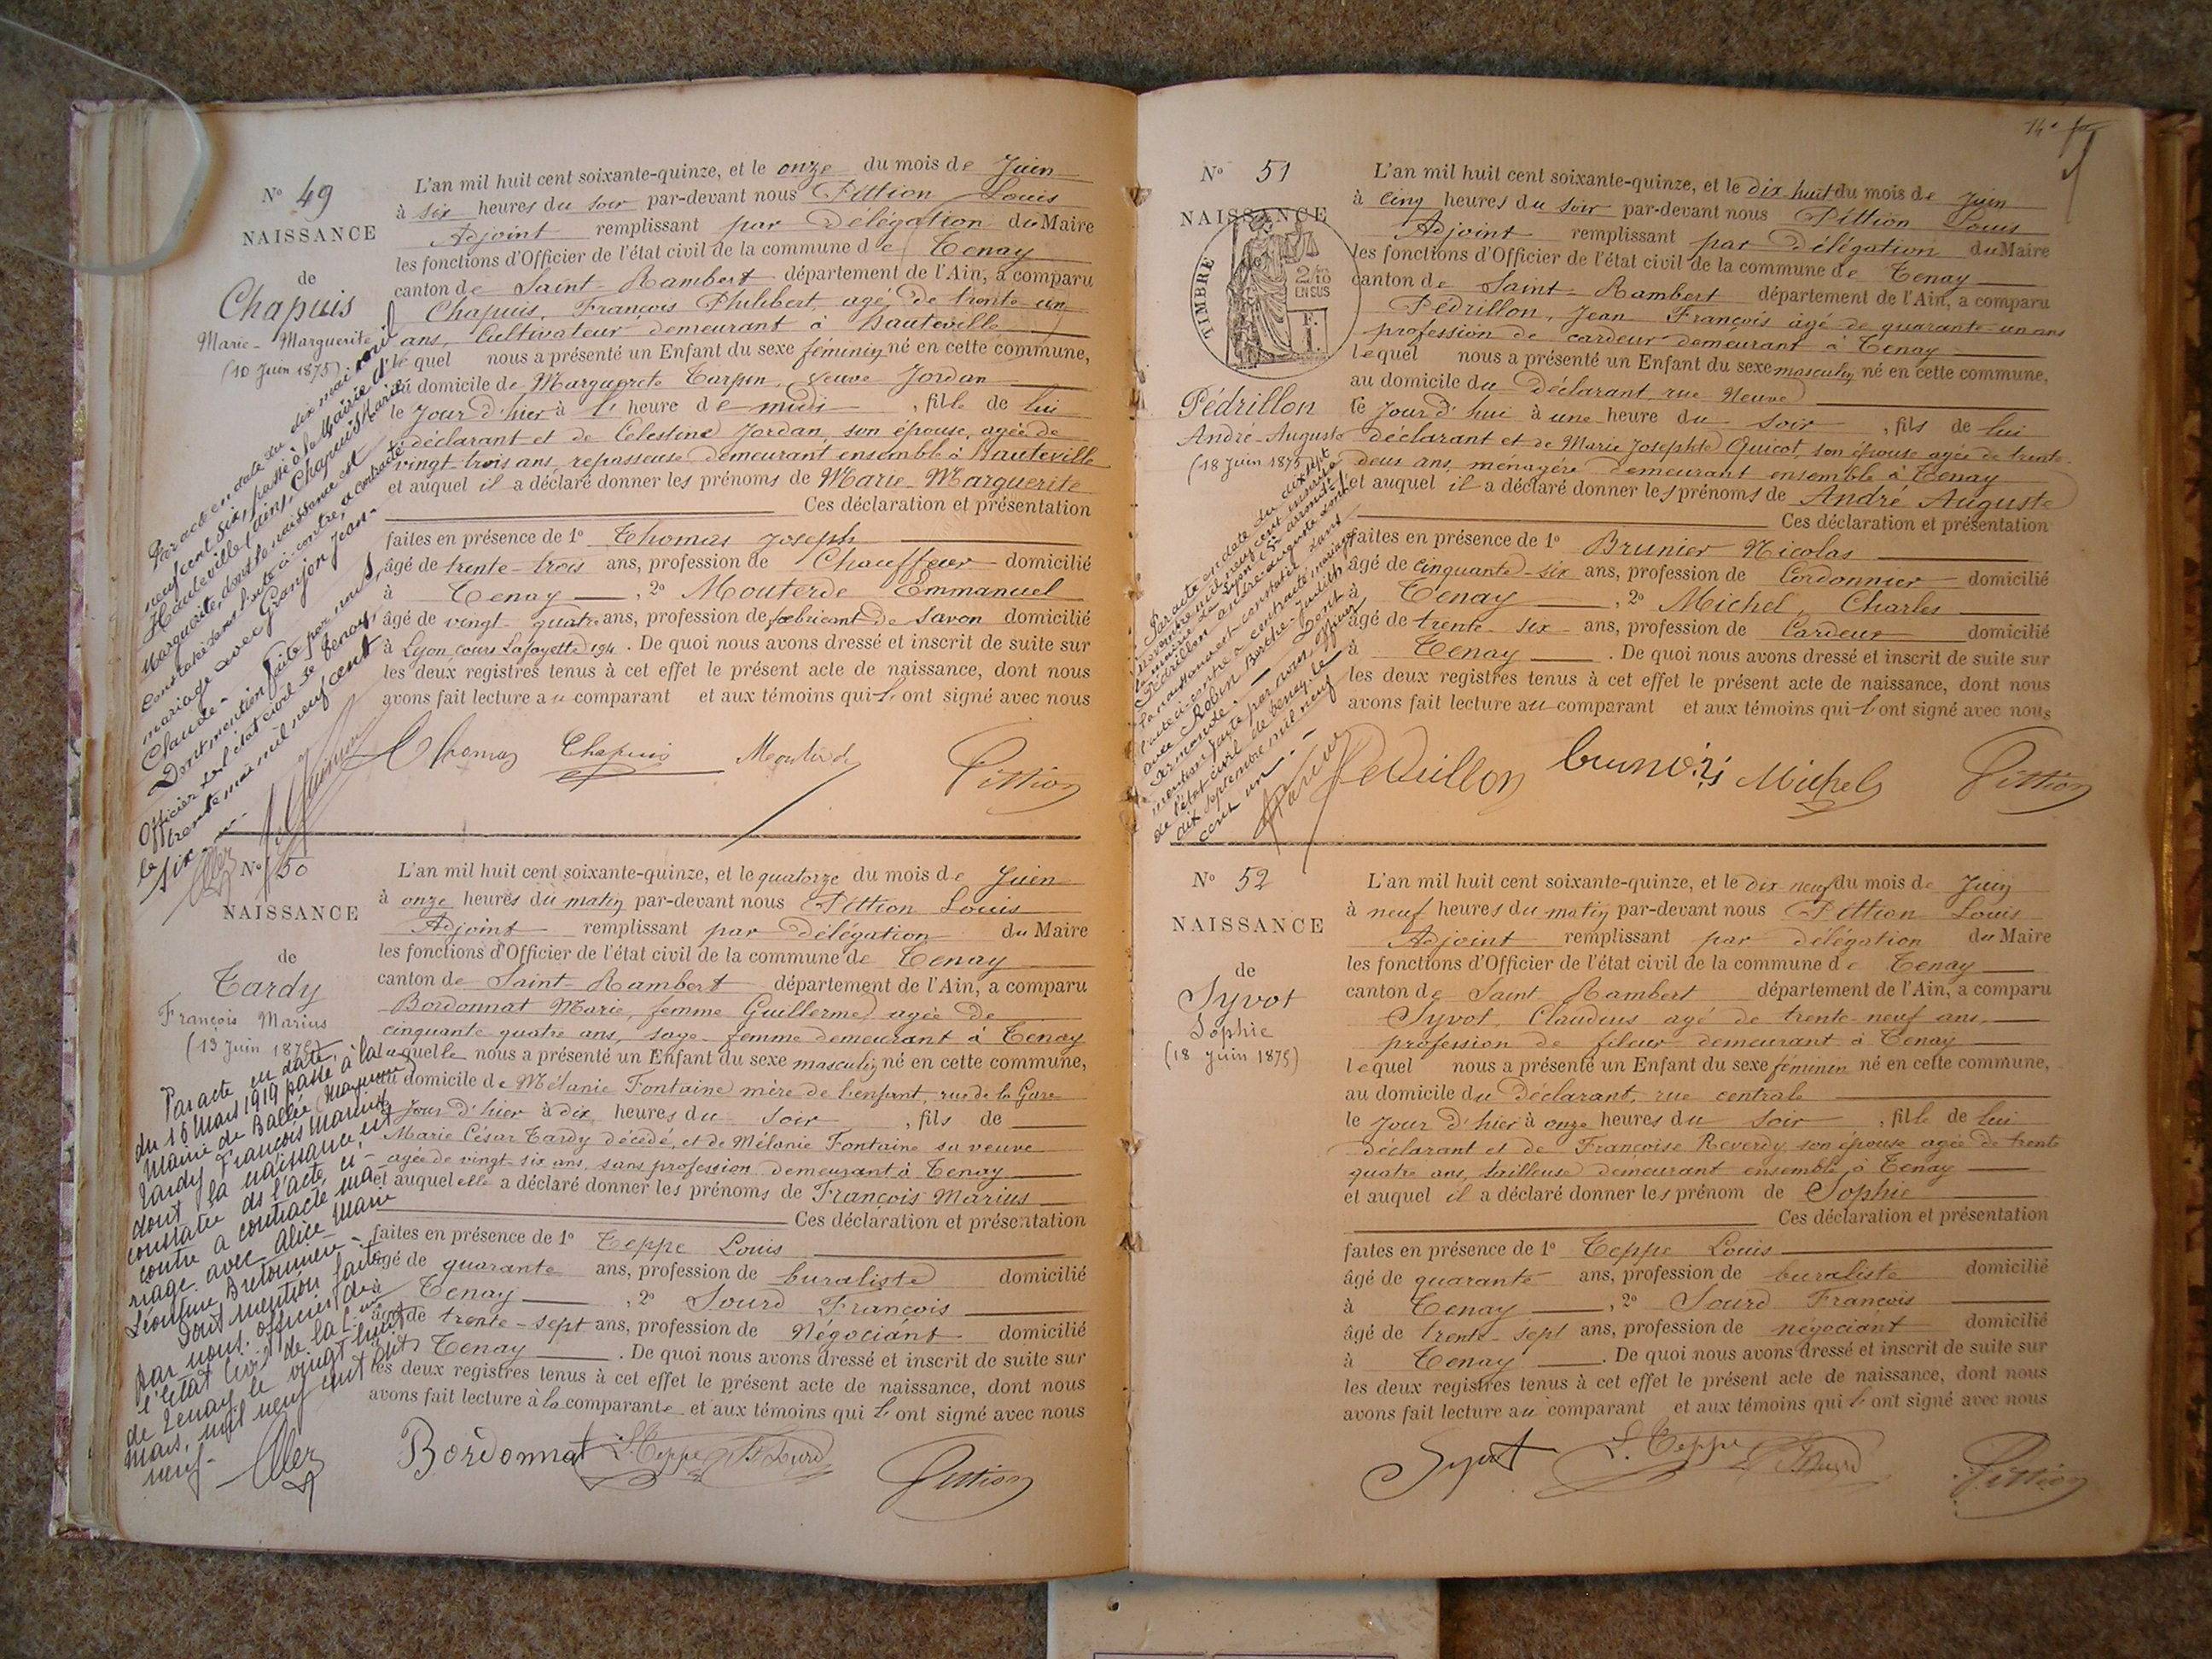 N° 49
NAISSANCE
de
Chapuis
Marie-Marguerite
(10 Juin 1875)
L'an mil huit cent soixante-quinze, et le onze du mois de Juin
à six heures du soir par-devant nous Pittion Louis
Adjoint remplissant par Délégation du Maire
les fonctions d'Officier de l'état civil de la commune de Tenay
canton de Saint-Rambert département de l'Ain, a comparu
Chapuis, François Philibert, agé de trente-un
ans, Cultivateur demeurant à Hauteville
lequel nous a présenté un Enfant du sexe féminin né en cette commune,
au domicile de Marguerite Carpin, veuve Jordan
le Jour d'hier à l' heure de midi, fille de lui
déclarant et de Célestine Jordan, son épouse, agée de
vingt-trois ans, repasseuse demeurant ensemble à Hauteville
et auquel il a déclaré donner les prénoms de Marie-Marguerite
Ces déclaration et présentation
faites en présence de 1° Thomas Joseph
âgé de trente-trois ans, profession de Chauffeur domicilié
à Tenay, 2° Mouterde Emmanuel
âgé de vingt-quatre ans, profession de fabricant de Savon domicilié
à Lyon cours Lafayette 194. De quoi nous avons dressé et inscrit de suite sur
les deux registres tenus à cet effet le présent acte de naissance, dont nous
avons fait lecture au comparant et aux témoins qui l'ont signé avec nous
Thomas Chapuis Mouterde Pittion
Par acte en date du dix mai mil
neuf cent six, passé à la Mairie d'
Hauteville (Ain), Chapuis Marie
Marguerite, dont la naissance est
constatée dans l'acte ci-contre, a contracté
mariage avec Granjon Jean-
Claude-
Dont mention faite par nous,
Officier de l'état civil de Tenay,
le trente mai mil neuf cent
six-
N° 50
NAISSANCE
de
Tardy
François Marius
(13 Juin 1875)
L'an mil huit cent soixante-quinze, et le quatorze du mois de Juin
à onze heures du matin par-devant nous Pittion Louis
Adjoint remplissant par Délégation du Maire
les fonctions d'Officier de l'état civil de la commune de Tenay
canton de Saint-Rambert département de l'Ain, a comparu
Bordonnat Marie, femme Guillermet, agée de
cinquante quatre ans, sage-femme demeurant à Tenay
laquelle nous a présenté un Enfant du sexe masculin né en cette commune,
au domicile de Mélanie Fontaine mère de l'enfant, rue de la Gare
le Jour d'hier à dix heures du soir, fils de
Marie César Tardy décédé, et de Mélanie Fontaine sa veuve
agée de vingt-six ans, sans profession demeurant à Tenay
et auquel elle a déclaré donner les prénoms de François Marius
Ces déclaration et présentation
faites en présence de 1° Teppe Louis
âgé de quarante ans, profession de buraliste domicilié
à Tenay, 2° Sourd François
âgé de trente-sept ans, profession de Négociant domicilié
à Tenay. De quoi nous avons dressé et inscrit de suite sur
les deux registres tenus à cet effet le présent acte de naissance, dont nous
avons fait lecture à la comparante et aux témoins qui l'ont signé avec nous
Bordonnat L. Teppe Sourd Pittion
Par acte en date
du 15 Mars 1919 passé à la
Mairie de Ballée (Mayenne)
Tardy François Marius
dont la naissance est
constatée ds l'acte ci-
contre a contracté ma-
riage avec Alice Marie
Léontine Bretonnière-
Dont mention faite
par nous officier de
l'état civil de la Cne
de Tenay, le vingt huit
mars, mil neuf cent dix
neuf-
14e
N° 51
NAISSANCE
TIMBRE
2/10
EN SUS
F.
1
Pédrillon
André-Auguste
(18 Juin 1875)
L'an mil huit cent soixante-quinze, et le dix-huit du mois de Juin
à cinq heures du soir par-devant nous Pittion Louis
Adjoint remplissant par délégation du Maire
les fonctions d'Officier de l'état civil de la commune de Tenay
canton de Saint-Rambert département de l'Ain, a comparu
Pédrillon, Jean François âgé de quarante-un ans
profession de cardeur demeurant à Tenay
lequel nous a présenté un Enfant du sexe masculin né en cette commune,
au domicile du Déclarant, rue Neuve
le Jour d'hui à une heure du soir, fils de lui
déclarant et de Marie Josephte Quicot, son épouse agée de trente-
deux ans, ménagère demeurant ensemble à Tenay
et auquel il a déclaré donner les prénoms de André Auguste
Ces déclaration et présentation
faites en présence de 1° Brunier Nicolas
âgé de cinquante-six ans, profession de Cordonnier domicilié
à Tenay, 2° Michel, Charles
âgé de trente-six ans, profession de Cardeur domicilié
à Tenay. De quoi nous avons dressé et inscrit de suite sur
les deux registres tenus à cet effet le présent acte de naissance, dont nous
avons fait lecture au comparant et aux témoins qui l'ont signé avec nous
Pedrillon brunier Michel Pittion
Par acte en date du dix sept
mil neuf cent
Mairie de Lyon 5e arrondt
Pédrillon André Auguste dont
la naissance est constatée dans
l'acte ci-contre a contracté mariage
avec Robin Berthe-Judith
Armande- Dont
mention faite par nous, officier
de l'état civil de Tenay, le
dix septembre mil neuf
cent un-
N° 52
NAISSANCE
de
Syvot
Sophie
(18 Juin 1875)
L'an mil huit cent soixante-quinze, et le dix neuf du mois de Juin
à neuf heures du matin par-devant nous Pittion Louis
Adjoint remplissant par délégation du Maire
les fonctions d'Officier de l'état civil de la commune de Tenay
canton de Saint Rambert département de l'Ain, a comparu
Syvot, Claudius agé de trente-neuf ans,
profession de fileur demeurant à Tenay
lequel nous a présenté un Enfant du sexe féminin né en cette commune,
au domicile du Déclarant, rue centrale
le Jour d'hier à onze heures du soir, fille de lui
déclarant et de Françoise Reverdy, son épouse agée de trente
quatre ans, tailleuse demeurant ensemble à Tenay
et auquel il a déclaré donner les prénom de Sophie
Ces déclaration et présentation
faites en présence de 1° Teppe Louis
âgé de quarante ans, profession de buraliste domicilié
à Tenay, 2° Sourd François
âgé de trente-sept ans, profession de négociant domicilié
à Tenay. De quoi nous avons dressé et inscrit de suite sur
les deux registres tenus à cet effet le présent acte de naissance, dont nous
avons fait lecture au comparant et aux témoins qui l'ont signé avec nous
Syvot L. Teppe Sourd Pittion